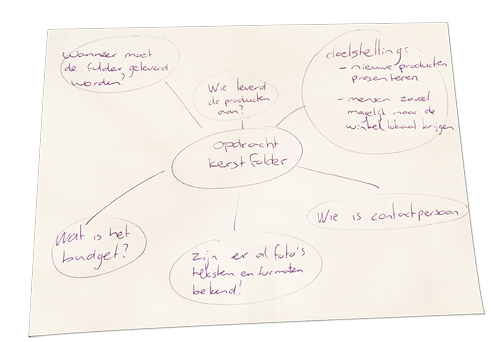 Wanneer moet
de folder geleverd
worden?
Wie leverd
de producten
aan?
doelstelling:
- nieuwe producten
presenteren
- mensen zoveel
mogelijk naar de
winkel lokaal krijgen
opdracht
kerst folder
Wat is het
budget?
Zijn er al foto's
teksten en formaten
bekend!
Wie is contactpersoon